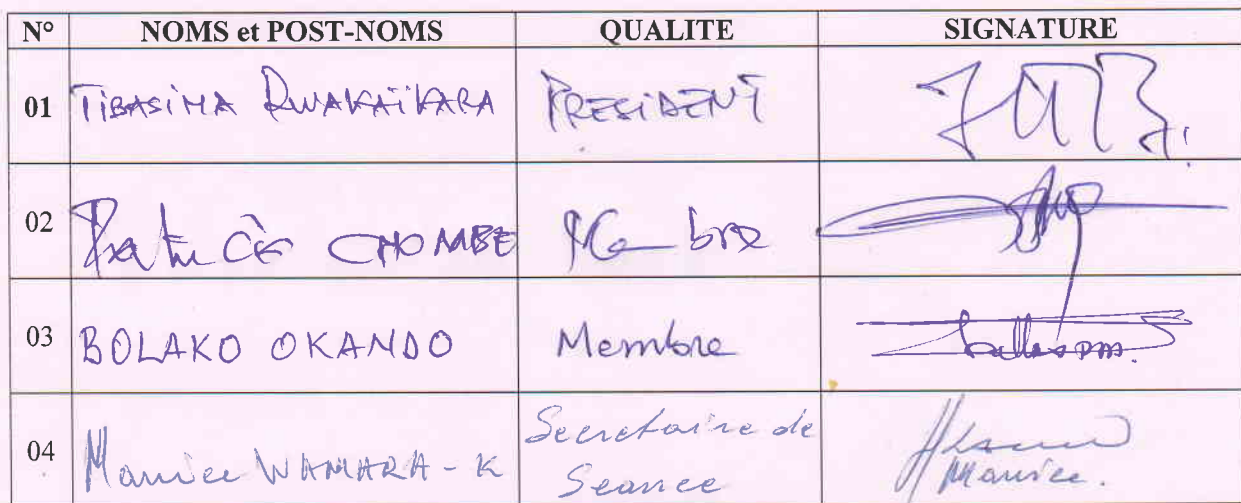 N° NOMS et POST-NOMS QUALITE SIGNATURE
01 TIBASIMA RWAKAÏKARA PRESIDENT
02 Patrice CHOMBE Membre
03 BOLAKO OKANDO Membre
04 Maurice WAMARA - K Secretaire de
Seance
Maurice.